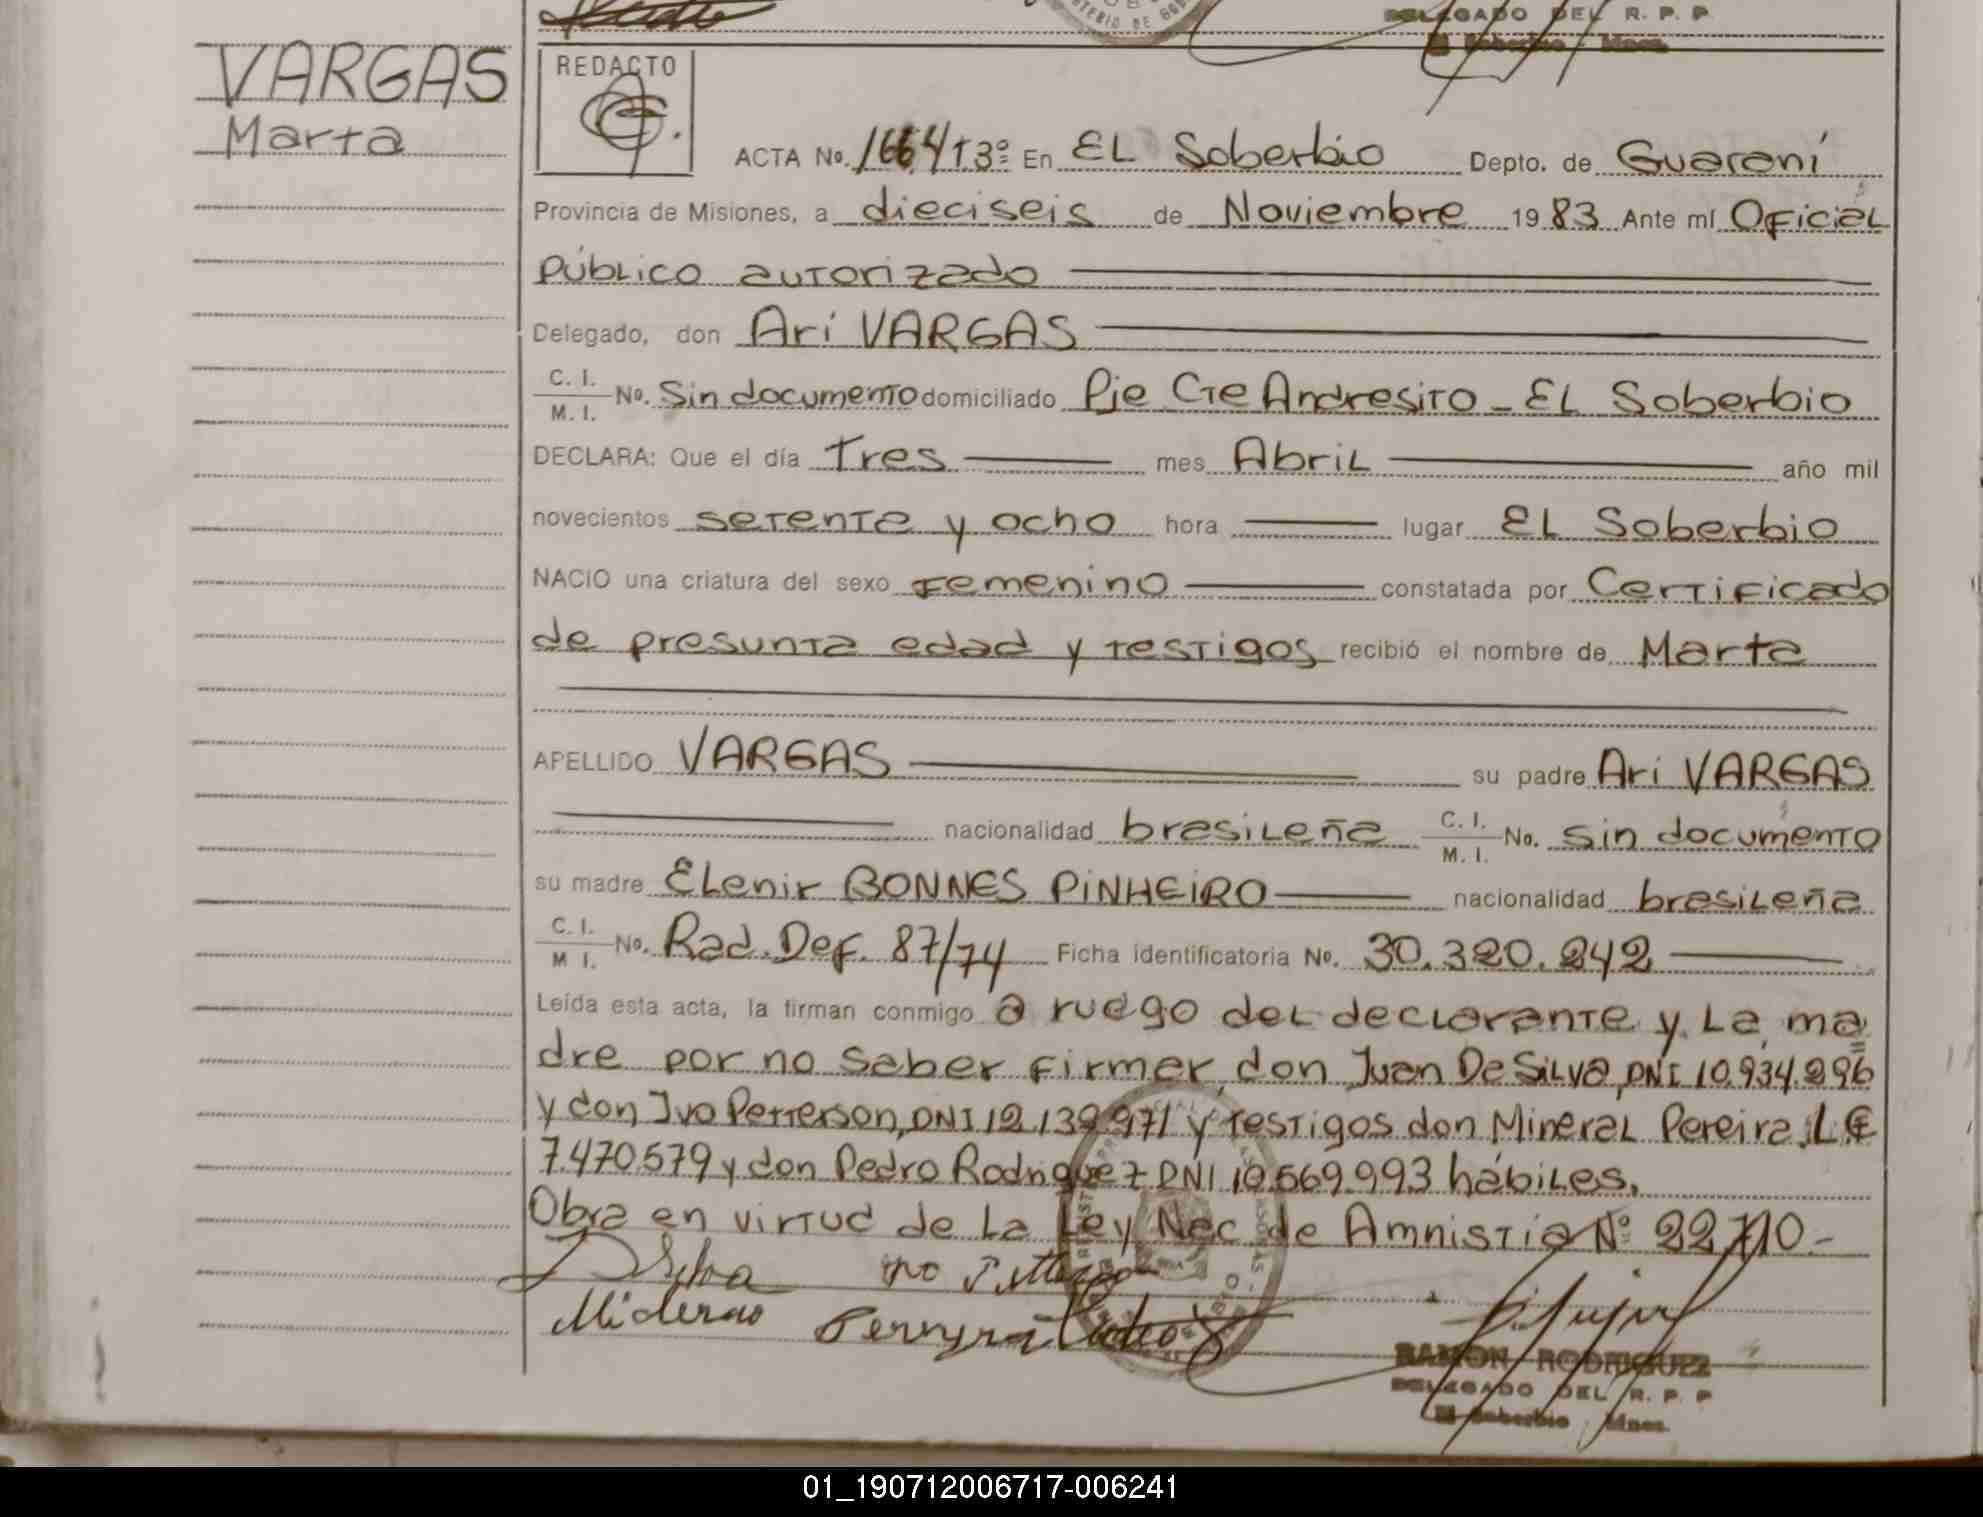 DELEGADO DEL R. P. P.
El Soberbio - Mnes.
VARGAS
Marta
REDACTO
ACTA No. 1664 T3º En EL Soberbio Depto. de Guaraní
Provincia de Misiones, a dieciseis de Noviembre 1983 Ante mí Oficial
Público autorizado
Delegado, don Ari VARGAS
C. I.
M. I. No. Sin documento domiciliado Pje Cte Andresito - EL Soberbio
DECLARA: Que el día Tres mes Abril año mil
novecientos setenta y ocho hora lugar EL Soberbio
NACIO una criatura del sexo Femenino constatada por Certificado
de presunta edad y testigos recibió el nombre de Marta
APELLIDO VARGAS su padre Ari VARGAS
nacionalidad brasileña C. I. M. I. No. Sin documento
su madre Elenir BONNES PINHEIRO nacionalidad brasileña
C. I. M I. No. Rad. Def. 87/74 Ficha identificatoria No. 30.320.242
Leída esta acta, la firman conmigo a ruego del declarante y la ma
dre por no saber firmar, don Juan De Silva, DNI 10.934.296
y don Ivo Petterson, DNI 12.139.971 y testigos don Mineral Pereira, L E
7.470.579 y don Pedro Rodriguez DNI 10.569.993 hábiles.
Obra en virtud de la Ley Nac de Amnistia Nº 22710.-
D Silva Ivo Petterson
Pereyra
RAMON RODRIGUEZ
DELEGADO DEL R. P. P
El Soberbio - Mnes.
01_190712006717-006241